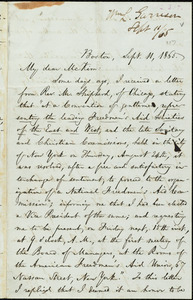 Wm. L. Garrison
Sept. 11/65
Boston, Sept. 11, 1865.
My dear McKim:
Some days ago, I received a letter
from Rev. Mr. Shipherd, of Chicago, stating
that "a Convention of gentlemen, repre-
senting the leading Freedmen's Aid Societies
of the East and West, and the late Sanitary
and Christian Commissions, held in the city
of New York on Thursday, August
at was resolved, after a free and satisfactory in-
terchange of sentiment, to proceed to the
organization of a National Freedmen's Aid Com-
mission"; informing me that I had been elected
a Vice President of the same, and requesting
me to be present, on Friday next, 15th inst.,
at 9 o'clock, A.M., at the first meeting of
the Board of Managers, at the Rooms of
the American Freedmen's Aid Union,
Nassau Street, New York." To this letter
I replied that I deemed it an honor to be